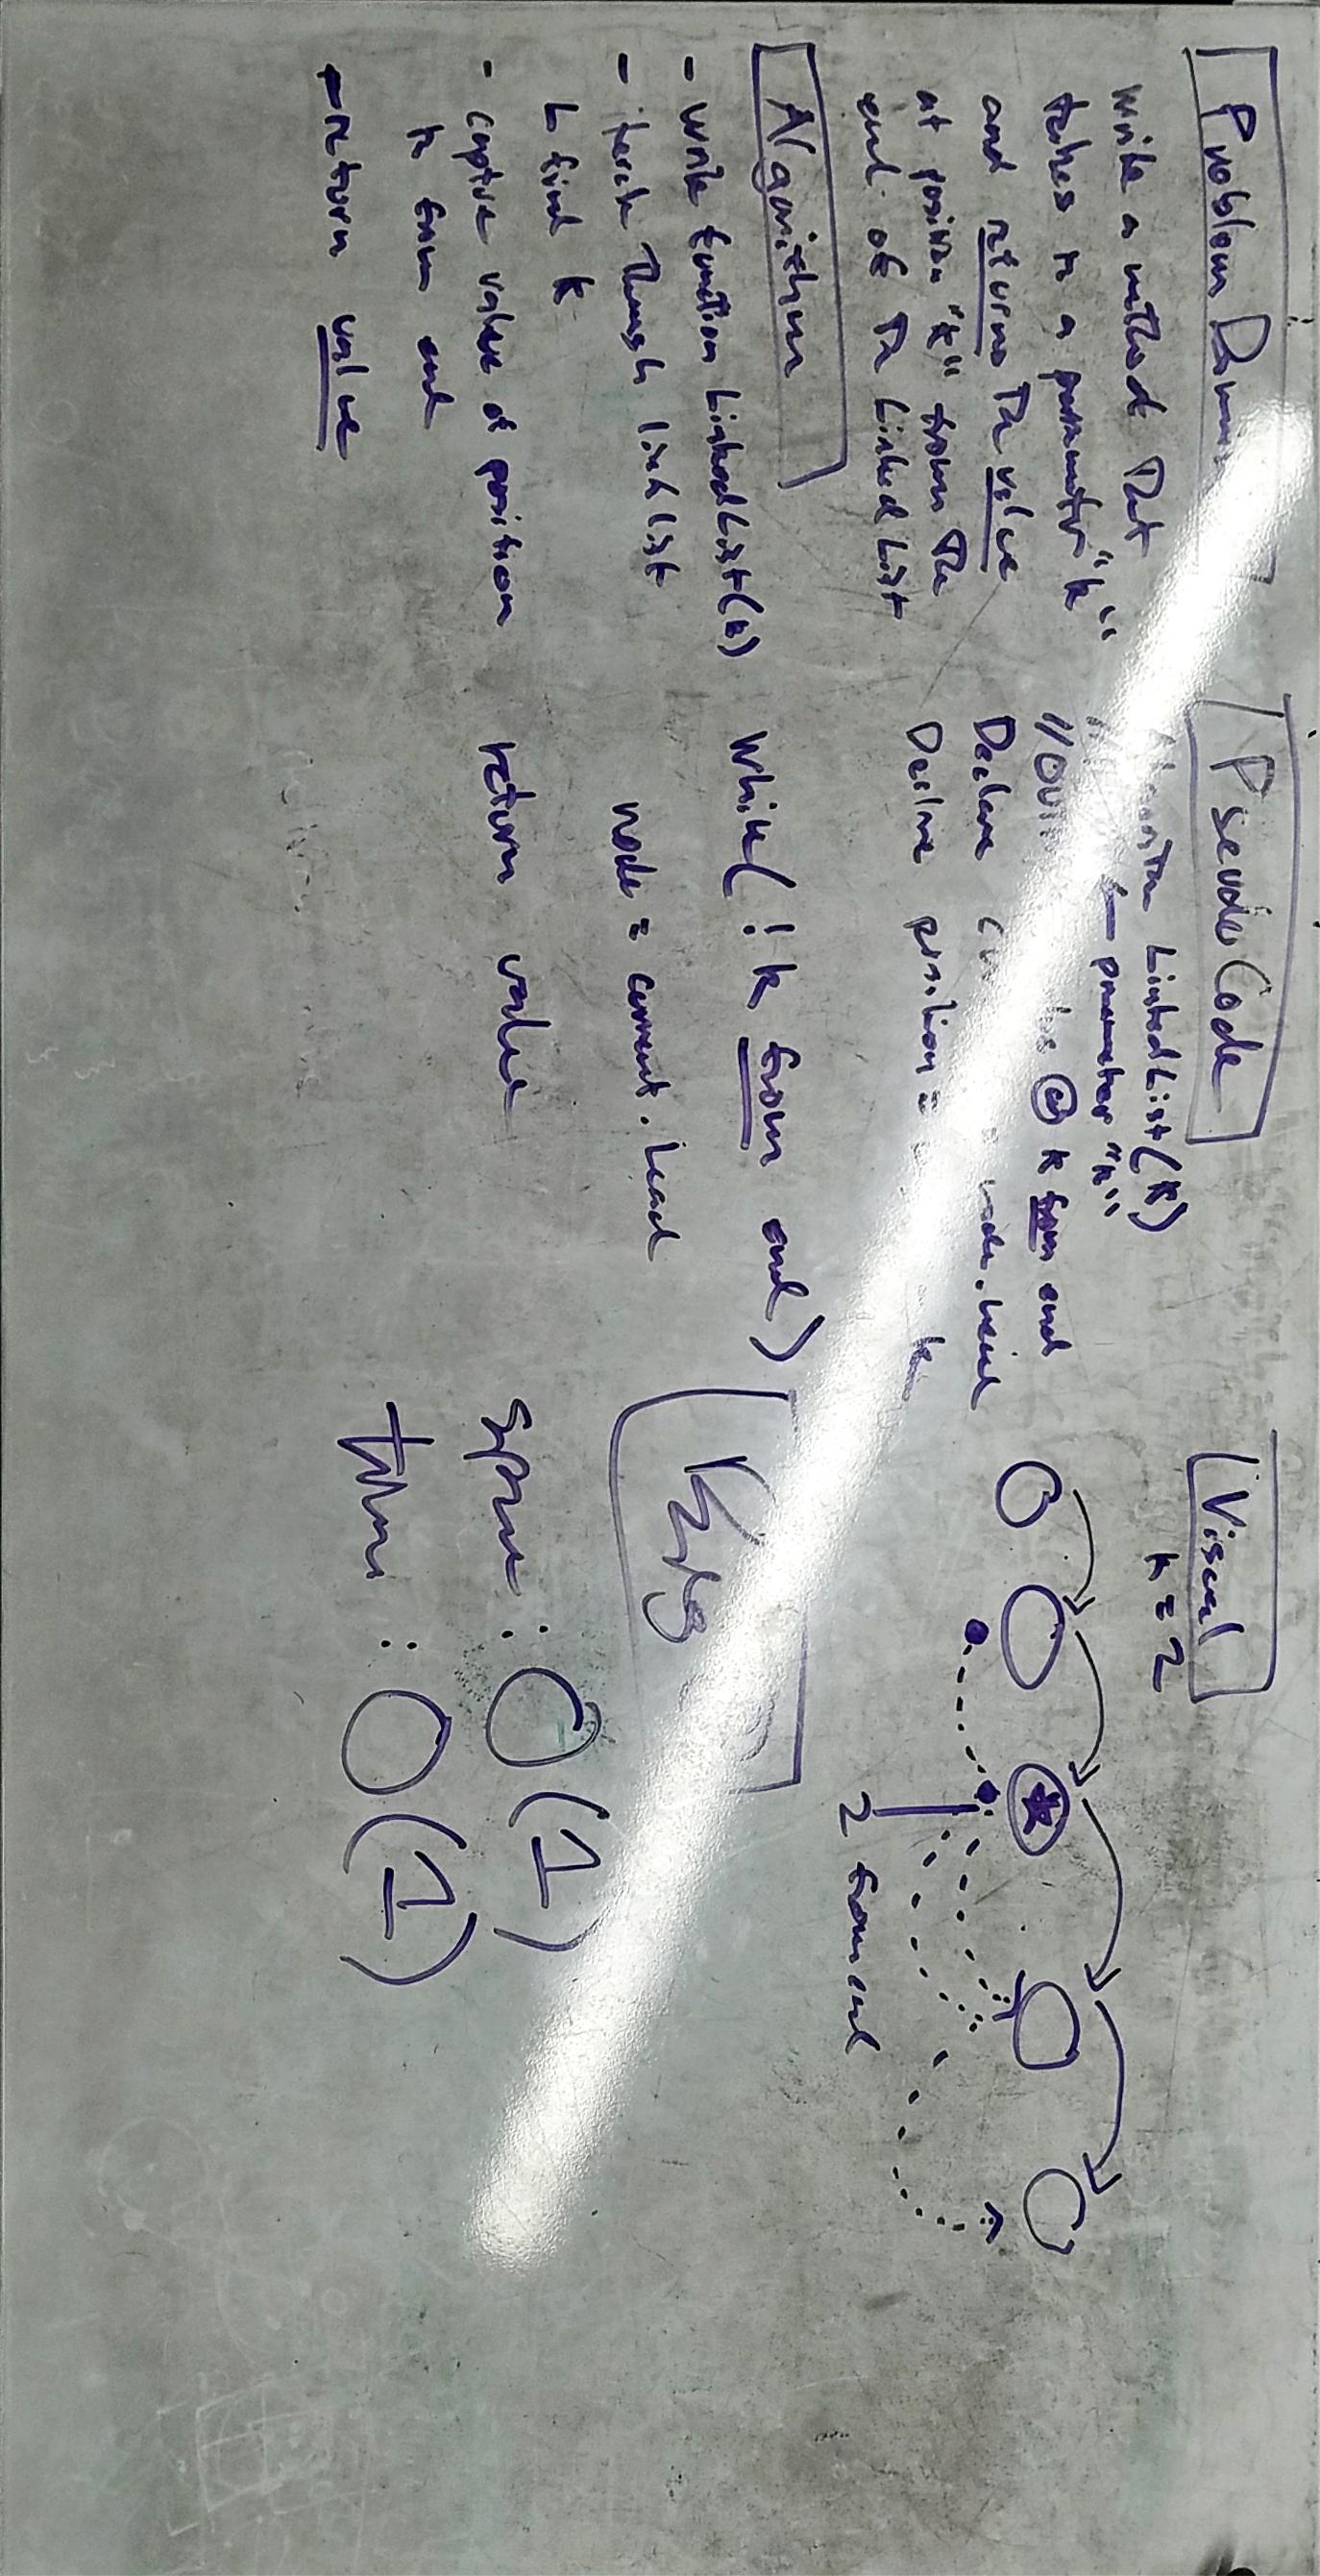 Problem
Write a method That
takes in a parameter "k"
and returns The value
at position "k" from The
end of The Linked List
Algorithm
- write function LinkedList(k)
- iterate Through link list
↳ find k
- captue value of position
k from end
- return value
PseudoCode
LinkedList(k)
// ← parameter "k"
// OUT @ k from end
Declare node.head
Declare position = k
While(!k from end)
node = current.head
return value
Visual
k = 2
2 from end
Big
Space : O(1)
time : O(1)